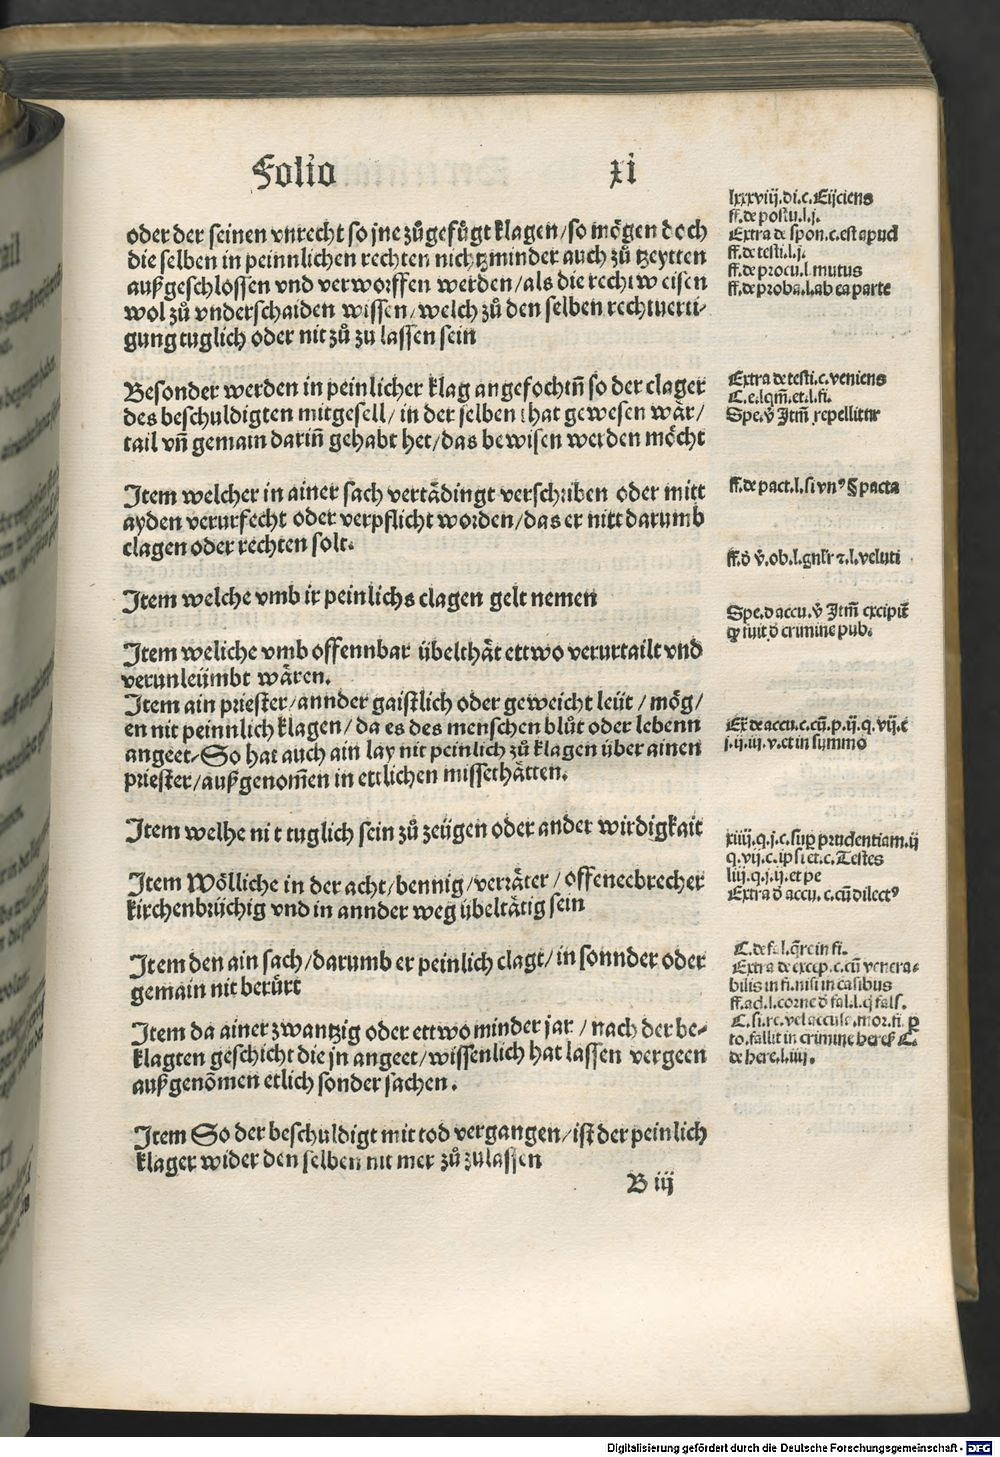 Folio xi
oder der seinen vnrecht so jne zůgefůgt klagen/so mögen doch
die selben in peinnlichen rechten nichtzminder auch zů tzeytten
außgeschlossen vnd verworffen werden/als die rechtweisen
wol zů vnderschaiden wissen/welch zů den selben rechtuerti-
gung tuglich oder nit zů zu lassen sein
Besonder werden in peinlicher klag angefochtñ so der clager
des beschuldigten mitgesell/in der selben that gewesen wär/
tail vñ gemain dariñ gehabt het/das bewisen werden möcht
Item welcher in ainer sach vertädingt verschriben oder mitt
ayden verurfecht oder verpflicht worden/das er nitt darumb
clagen oder rechten solt.
Item welche vmb ir peinlichs clagen gelt nemen
Item weliche vmb offennbar übelthät ettwo verurtailt vnd
verunleümbt wären.
Item ain priester/annder gaistlich oder geweicht leüt/mög/
en nit peinnlich klagen/da es des menschen blůt oder lebenn
angeet/So hat auch ain lay nit peinlich zů klagen über ainen
priester/außgenom̃en in ettlichen missethätten.
Item welhe nit tuglich sein zů zeügen oder ander wirdigkait
Item Wölliche in der acht/bennig/verräter/offeneebrecher
kirchenbrüchig vnd in annder weg übeltätig sein
Item den ain sach/darumb er peinlich clagt/in sonnder oder
gemain nit berürt
Item da ainer zwantzig oder ettwo minder jar/nach der be-
klagten geschicht die jn angeet/wissenlich hat lassen vergeen
außgenõmen etlich sonder sachen.
Item So der beschuldigt mit tod vergangen/ist der peinlich
klager wider den selben nit mer zů zulassen
B iij
lxxxviij.di.c.Eijciens
ff.de postu.l.j.
Extra de spon.c.est apud
ff.de testi.l.j.
ff.de procu.l mutus
ff.de proba.l.ab ea parte
Extra de testi.c.veniens
C.e.lqm̃.et.l.fi.
Spe.v̉ Itm̃ repellitur
ff.de pact.l.si vnꝰ § pacta
ff.d̉ v̉.ob.l.gnl̃r ⁊.l.veluti
Spe.d accu.v̉ Itm̃ excipit̃
fuit d̉ crimine pub.
Ex̃ de accu.c.cũ.p.ij.q.vij.c
j.ij.iij.v.et in summo
xiiij.q.j.c.suꝑ prudentiam.ij
q.vij.c.ipsi et.c.Testes
liij.q.j.ij.et pe
Extra d̉ accu.c.cũ dilectꝰ
C.de fal.l.q̃re in fi.
Extra de excep.c.cũ venera-
bilis in fi.nisi in casibus
ff.ad.l.corne d̉ fal.l.q̃ fals.
C.si.re.vel accusa.mor.fi. ꝑ
to.fallit in crimine heres̃ C.
de here.l.iiij.
Digitalisierung gefördert durch die Deutsche Forschungsgemeinschaft - DFG